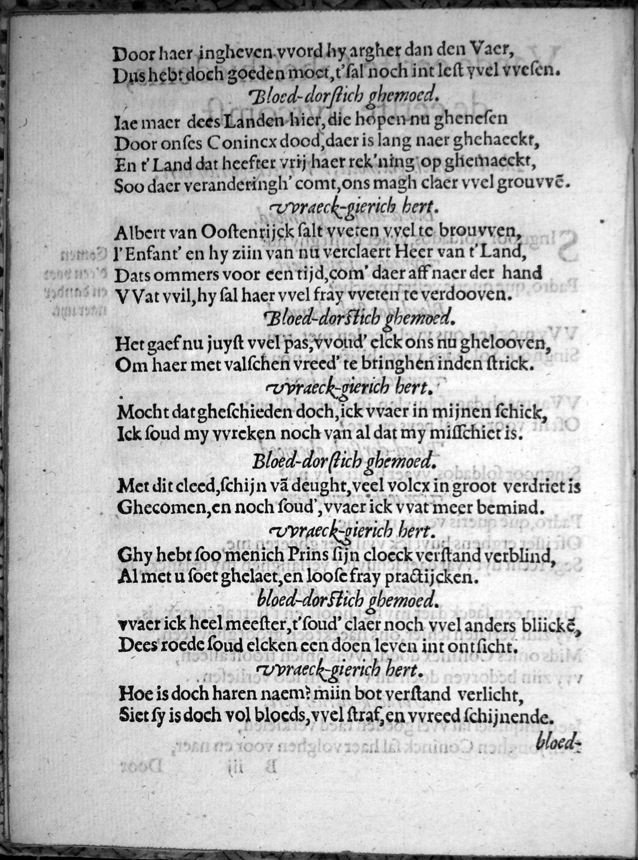 Door haer ingheven vvord hy argher dan den Vaer,
Dus hebt doch goeden moet, t'sal noch int lest yvel vvesen.
Bloed-dorstich ghemoed.
Iae maer dees Landen hier, die hopen nu ghenesen
Door onses Conincx dood, daer is lang naer ghehaeckt,
En t'Land dat heefter vrij haer rek'ning op ghemaeckt,
Soo daer veranderingh' comt, ons magh claer vvel grouvvē.
vvraeck-gierich hert.
Albert van Oostenrijck salt vveten vvel te brouvven,
l'Enfant' en hy ziin van nu verclaert Heer van t'Land,
Dats ommers voor een tijd, com' daer aff naer der hand
VVat vvil, hy sal haer vvel fray vveten te verdooven.
Bloed-dorstich ghemoed.
Het gaef nu juyst vvel pas, vvoud' elck ons nu ghelooven,
Om haer met valschen vreed' te bringhen inden strick.
vvraeck-gierich hert.
Mocht dat gheschieden doch, ick vvaer in mijnen schick,
Ick soud my vvreken noch van al dat my misschiet is.
Bloed-dorstich ghemoed.
Met dit cleed, schijn vā deught, veel volcx in groot verdriet is
Ghecomen, en noch soud', vvaer ick vvat meer bemind.
vvraeck-gierich hert.
Ghy hebt soo menich Prins sijn cloeck verstand verblind,
Al met u soet ghelaet, en loose fray practijcken.
bloed-dorstich ghemoed.
vvaer ick heel meester, t'soud' claer noch vvel anders bliickē,
Dees roede soud elcken een doen leven int ontsicht.
vvraeck-gierich hert.
Hoe is doch haren naem? miin bot verstand verlicht,
Siet sy is doch vol bloeds, vvel straf, en vvreed schijnende.
bloed-